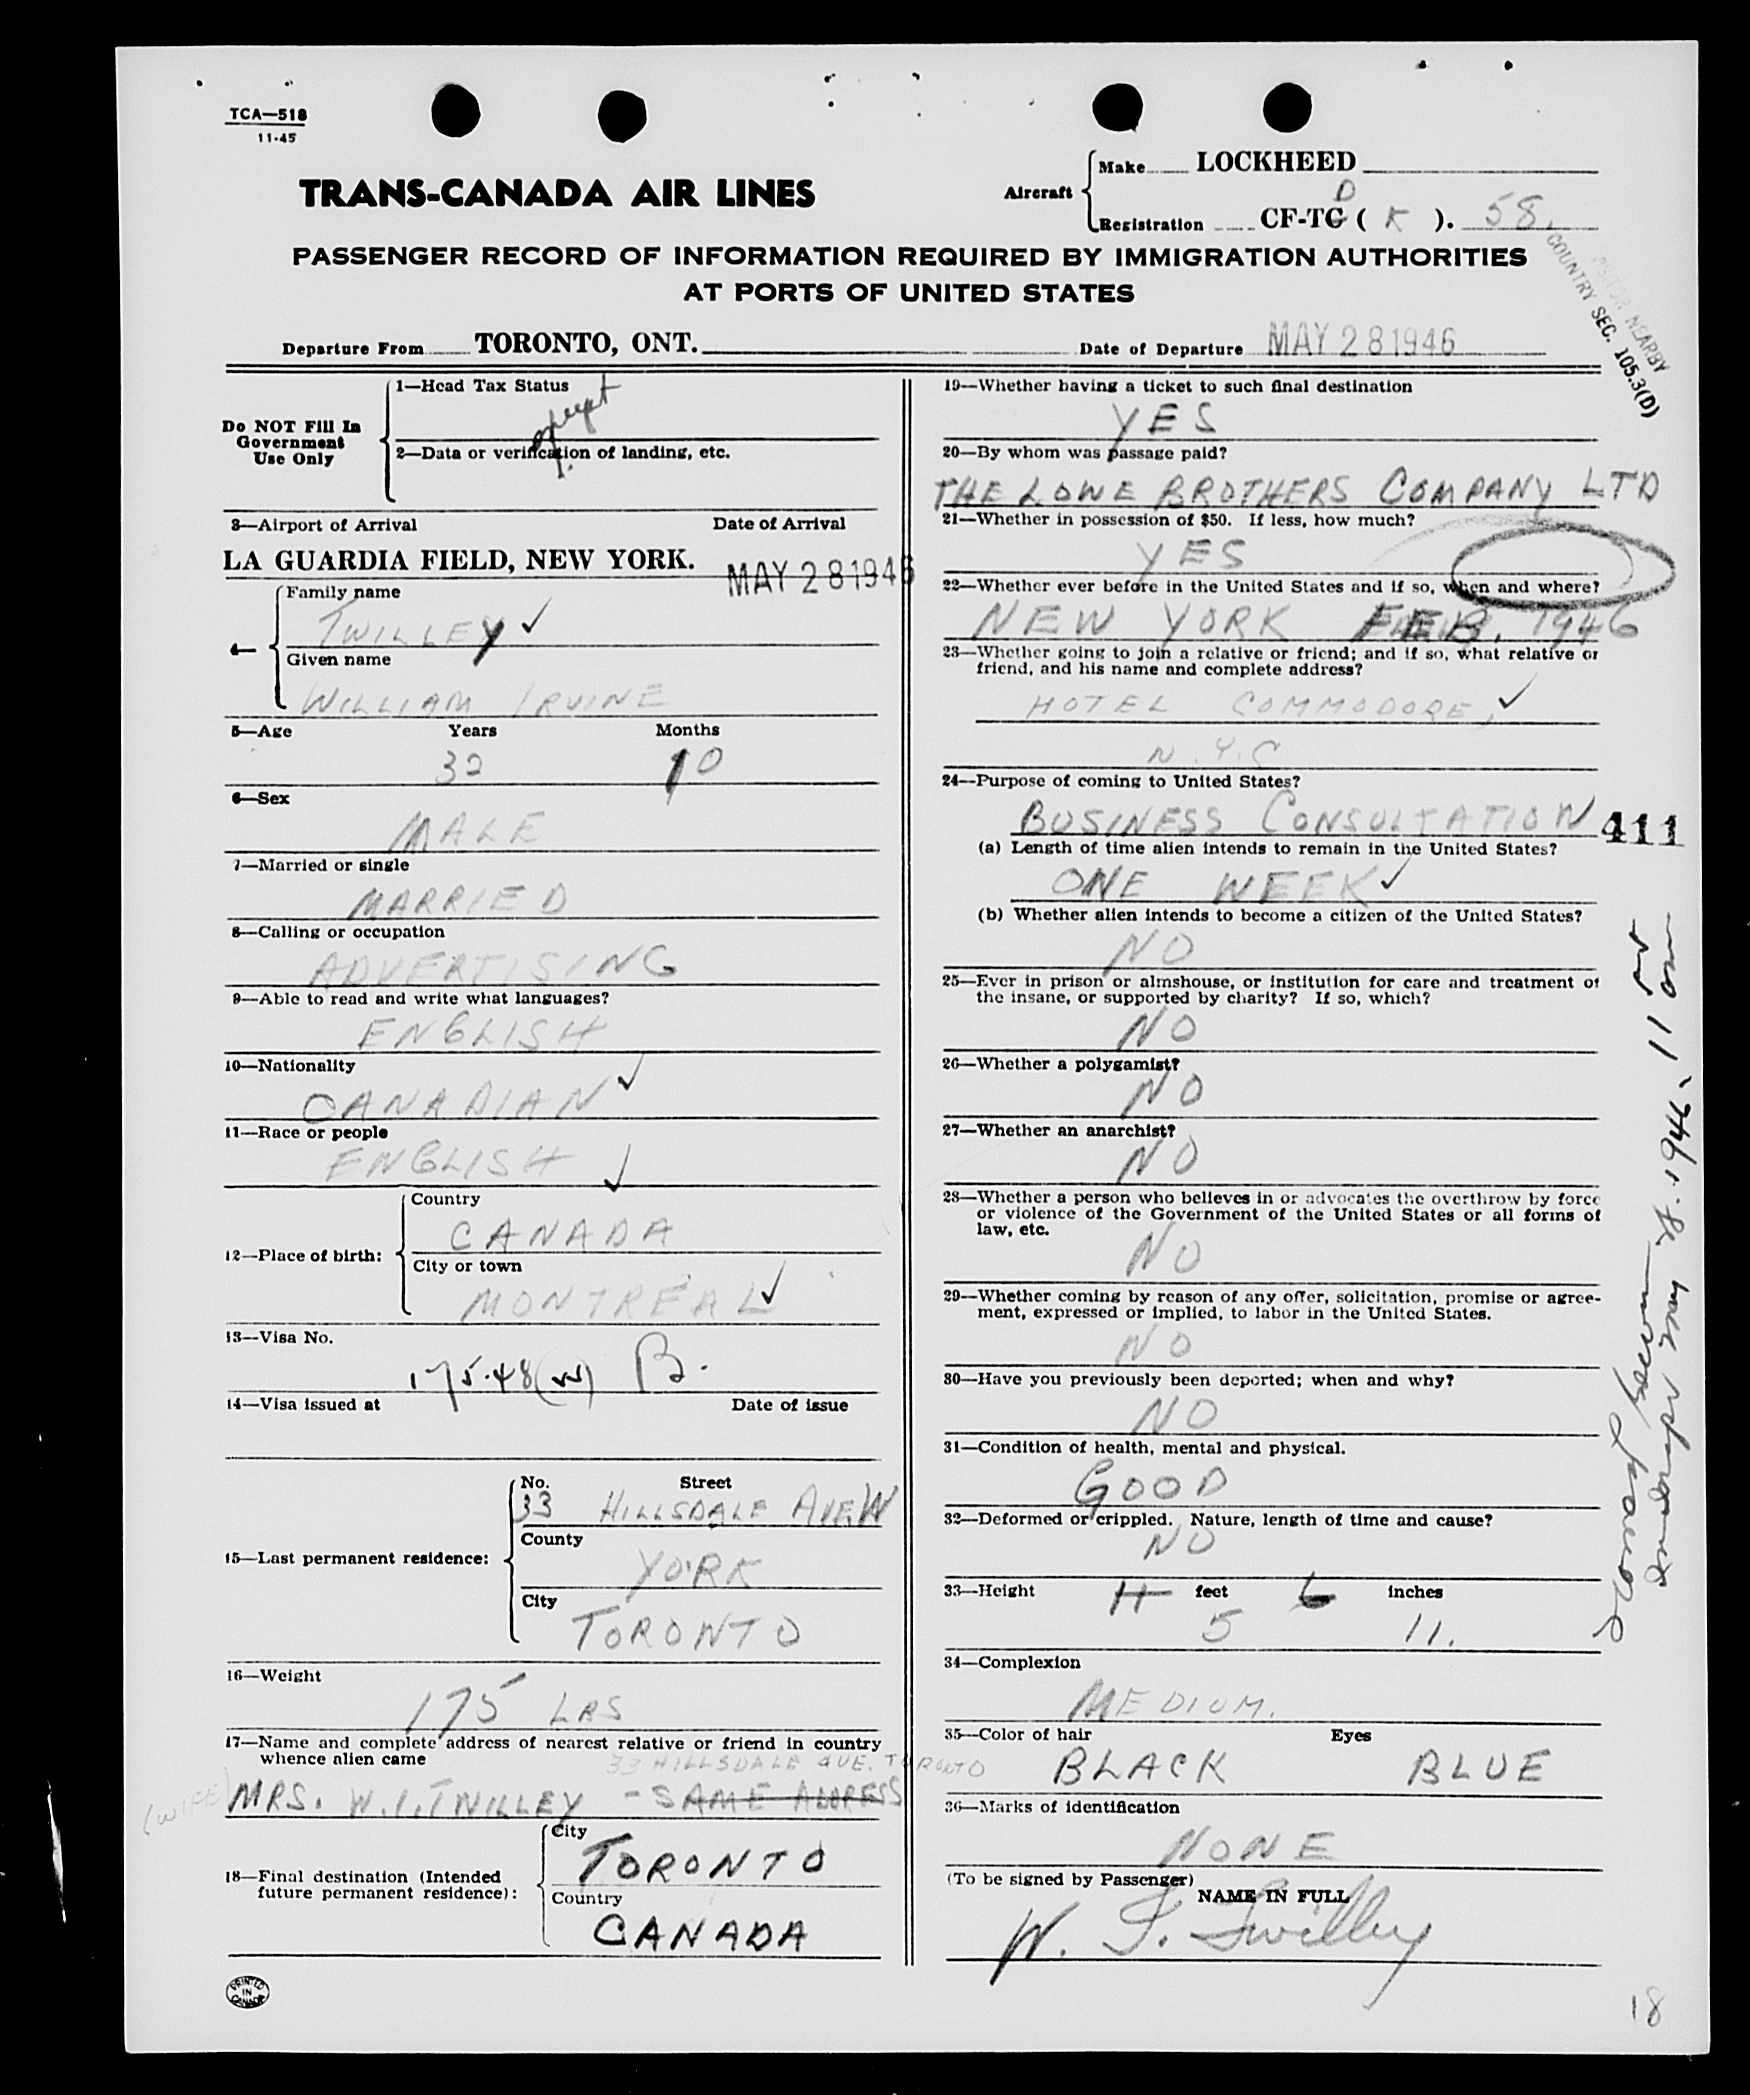 TCA—518
11-45
TRANS-CANADA AIR LINES
Aircraft
Make LOCKHEED
Registration CF-TG D ( K ). 58.
PASSENGER RECORD OF INFORMATION REQUIRED BY IMMIGRATION AUTHORITIES
AT PORTS OF UNITED STATES
NEARBY
COUNTRY SEC. 105.3(D)
Departure From TORONTO, ONT.
Date of Departure MAY 28 1946
Do NOT Fill In
Government
Use Only
1—Head Tax Status
2—Data or verification of landing, etc.
3—Airport of Arrival Date of Arrival
LA GUARDIA FIELD, NEW YORK. MAY 28 1946
4—
Family name
TWILLEY ✓
Given name
WILLIAM IRVINE
5—Age Years Months
32 10
6—Sex
MALE
7—Married or single
MARRIED
8—Calling or occupation
ADVERTISING
9—Able to read and write what languages?
ENGLISH
10—Nationality
CANADIAN ✓
11—Race or people
ENGLISH ✓
12—Place of birth:
Country
CANADA
City or town
MONTREAL ✓
13—Visa No.
175.48 B.
14—Visa issued at Date of issue
15—Last permanent residence:
No. Street
33 HILLSDALE AVE.W
County
YORK
City
TORONTO
16—Weight
175 LBS
17—Name and complete address of nearest relative or friend in country
whence alien came
33 HILLSDALE AVE. TORONTO
(WIFE) MRS. W.I. TWILLEY - SAME ADDRESS
18—Final destination (Intended
future permanent residence):
City
TORONTO
Country
CANADA
PRINTED
IN
CANADA
19—Whether having a ticket to such final destination
YES
20—By whom was passage paid?
THE LOWE BROTHERS COMPANY LTD
21—Whether in possession of $50. If less, how much?
YES
22—Whether ever before in the United States and if so, when and where?
NEW YORK FEB. 1946
23—Whether going to join a relative or friend; and if so, what relative or
friend, and his name and complete address?
HOTEL COMMODORE, ✓
N.Y.C
24—Purpose of coming to United States?
BUSINESS CONSULTATION
411
(a) Length of time alien intends to remain in the United States?
ONE WEEK ✓
(b) Whether alien intends to become a citizen of the United States?
NO
25—Ever in prison or almshouse, or institution for care and treatment of
the insane, or supported by charity? If so, which?
NO
26—Whether a polygamist?
NO
27—Whether an anarchist?
NO
28—Whether a person who believes in or advocates the overthrow by force
or violence of the Government of the United States or all forms of
law, etc.
NO
29—Whether coming by reason of any offer, solicitation, promise or agree-
ment, expressed or implied, to labor in the United States.
NO
30—Have you previously been deported; when and why?
NO
31—Condition of health, mental and physical.
GOOD
32—Deformed or crippled. Nature, length of time and cause?
NO
33—Height 4 feet 6 inches
5 11.
34—Complexion
MEDIUM.
35—Color of hair Eyes
BLACK BLUE
36—Marks of identification
NONE
(To be signed by Passenger)
NAME IN FULL
W. I. Twilley
18